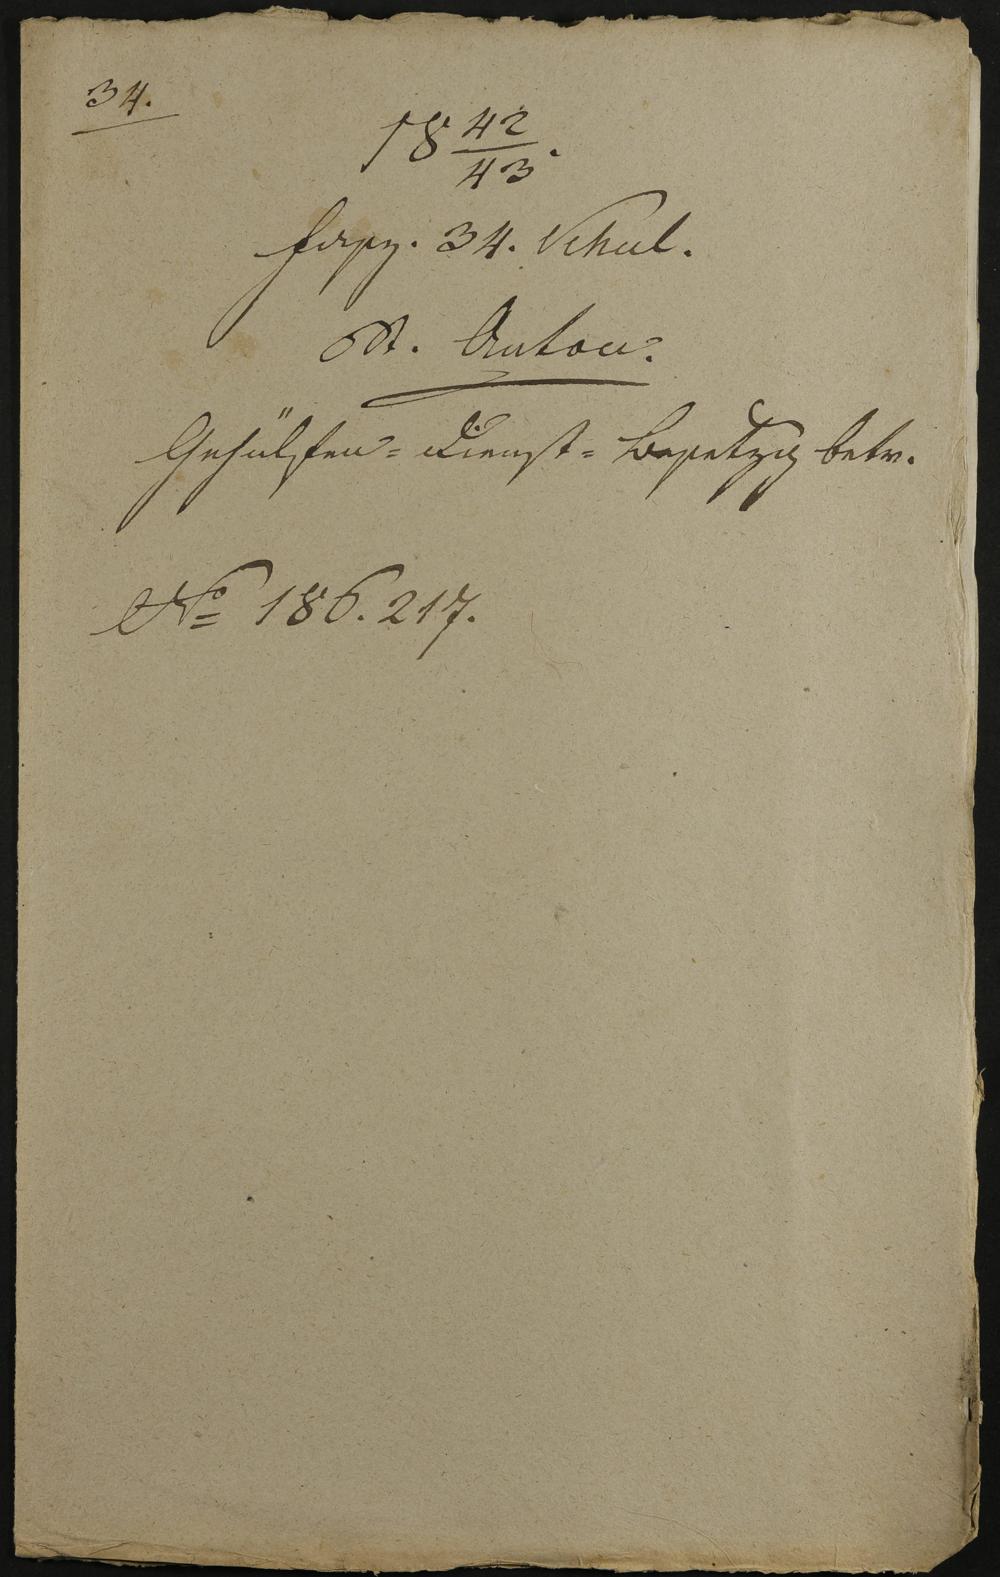 34.
18 42/43.
Fasz. 34. Schul.
St. Anton.
Gehülfen=Dienst=Besetzg betr.
No 186. 217.